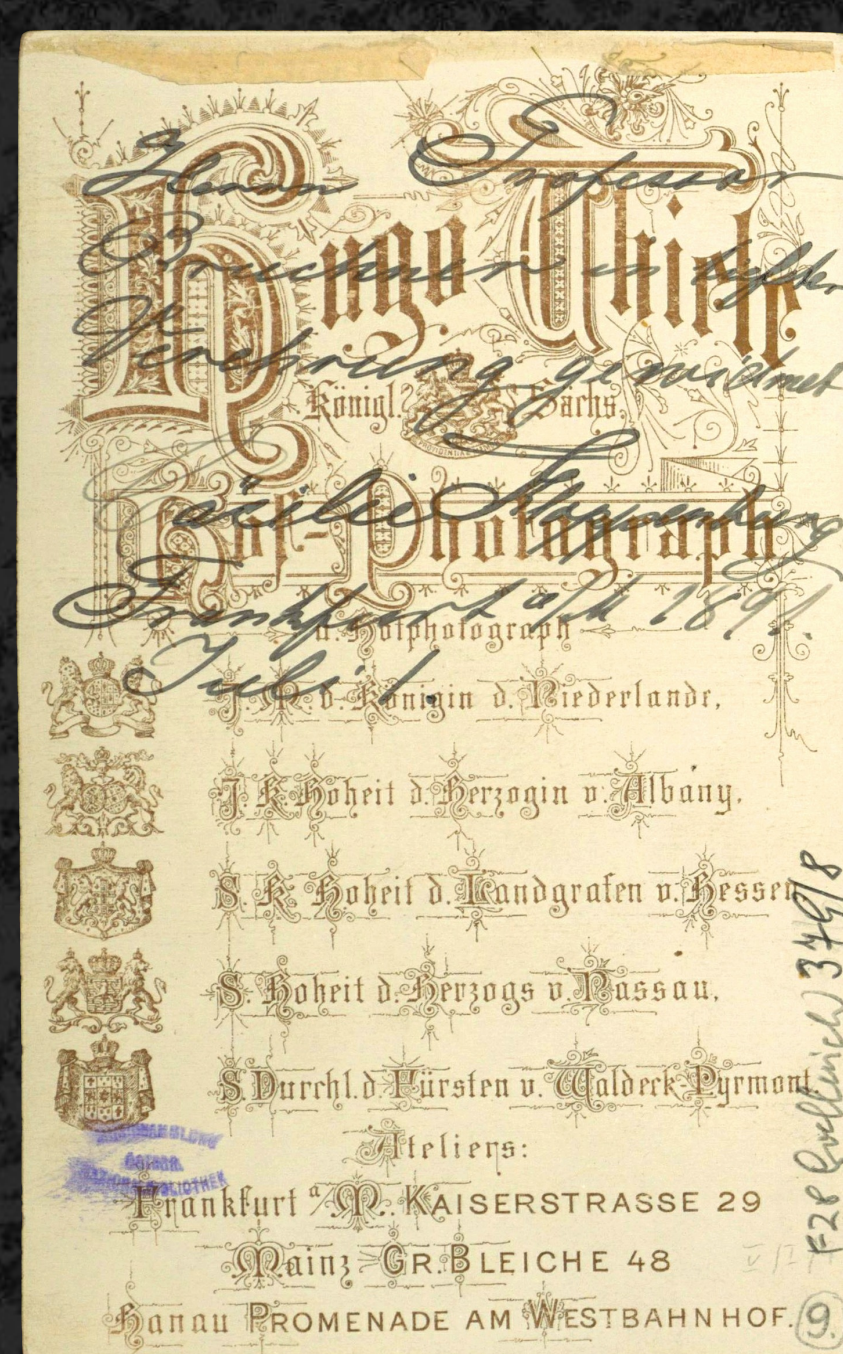 Herrn Professor
Bruckner in tiefster
Verehrung gewidmet
Cäcilie
Frankfurt a/M 1891.
Juli
Hugo Thiele
Königl. Sachs.
Hof-Photograph
u. Hofphotograph
J. M. d. Königin d. Niederlande,
J. K. Hoheit d. Herzogin v. Albany.
S. K. Hoheit d. Landgrafen v. Hessen
S. Hoheit d. Herzogs v. Nassau,
S. Durchl. d. Fürsten v. Waldeck-Pyrmont
Ateliers:
Frankfurt a/M. KAISERSTRASSE 29
Mainz GR. BLEICHE 48
Hanau PROMENADE AM WESTBAHNHOF.
F28 Göllerich 379/8
9.